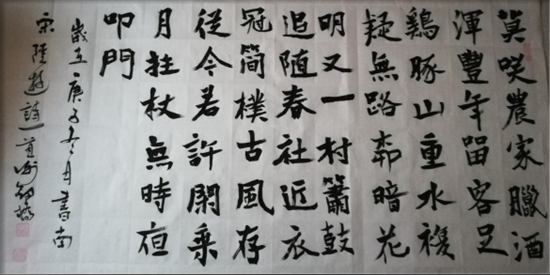 莫咲農家臘酒
渾豐年留客足
鷄豚山重水複
疑無路柳暗花
明又一村簫鼓
追隨春社近衣
冠簡樸古風存
從今若許閑乘
月拄杖無時夜
叩門
歲在庚子冬月書南
宋陸游詩一首